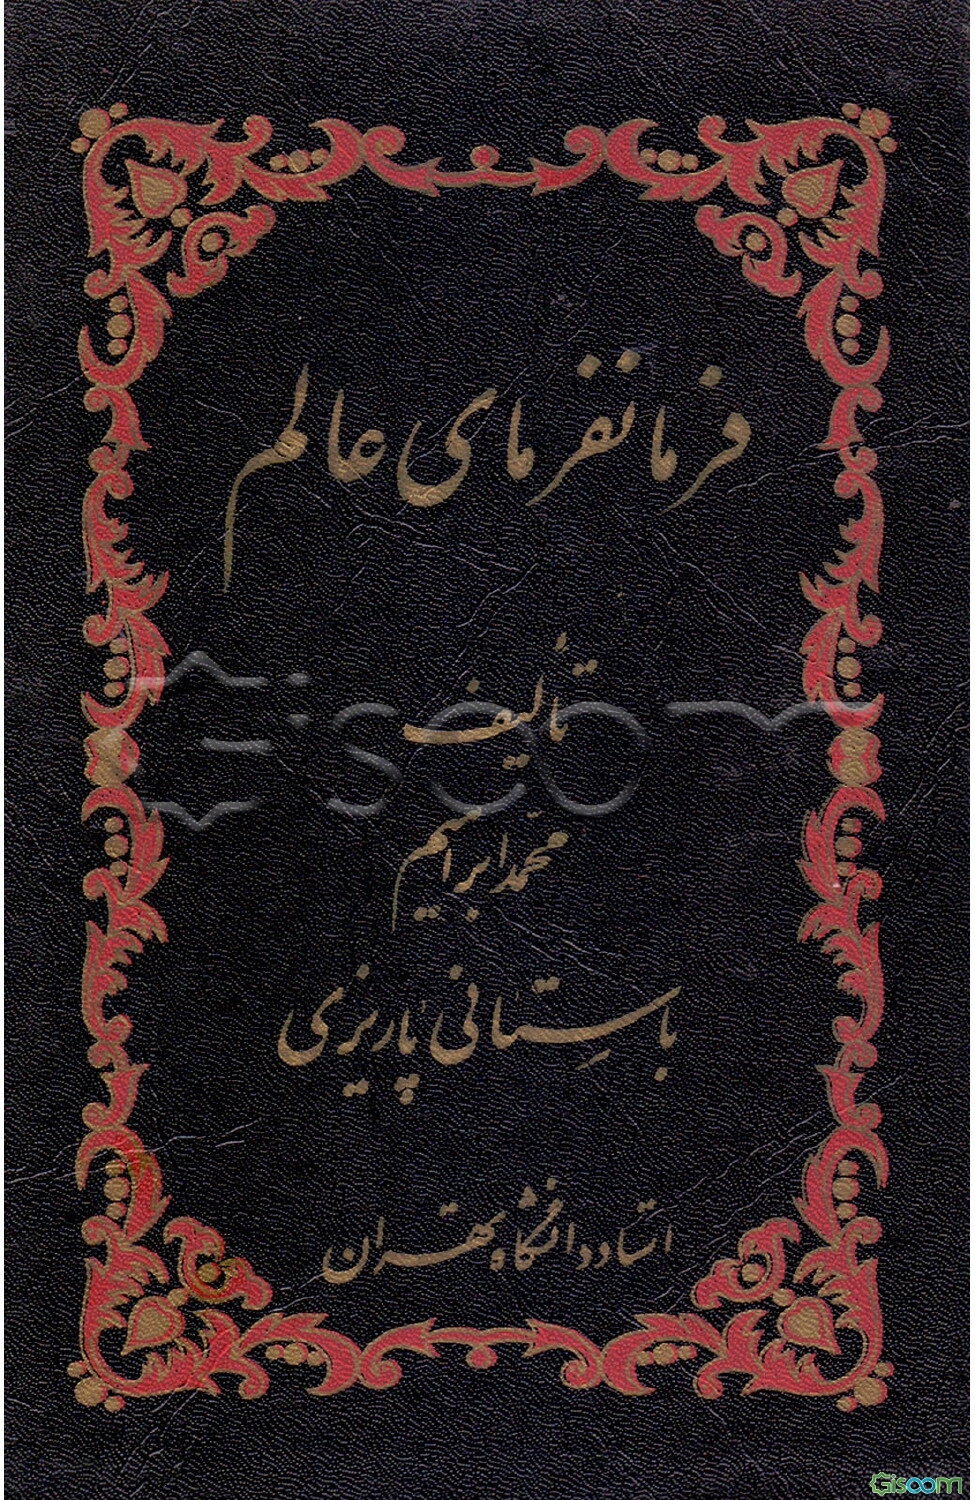 فرمانفرمای عالم
تألیف
محمّد ابراهیم
باستِانی پاریزی
استاد دانشگاه تهران
Gisoom
Gisoom